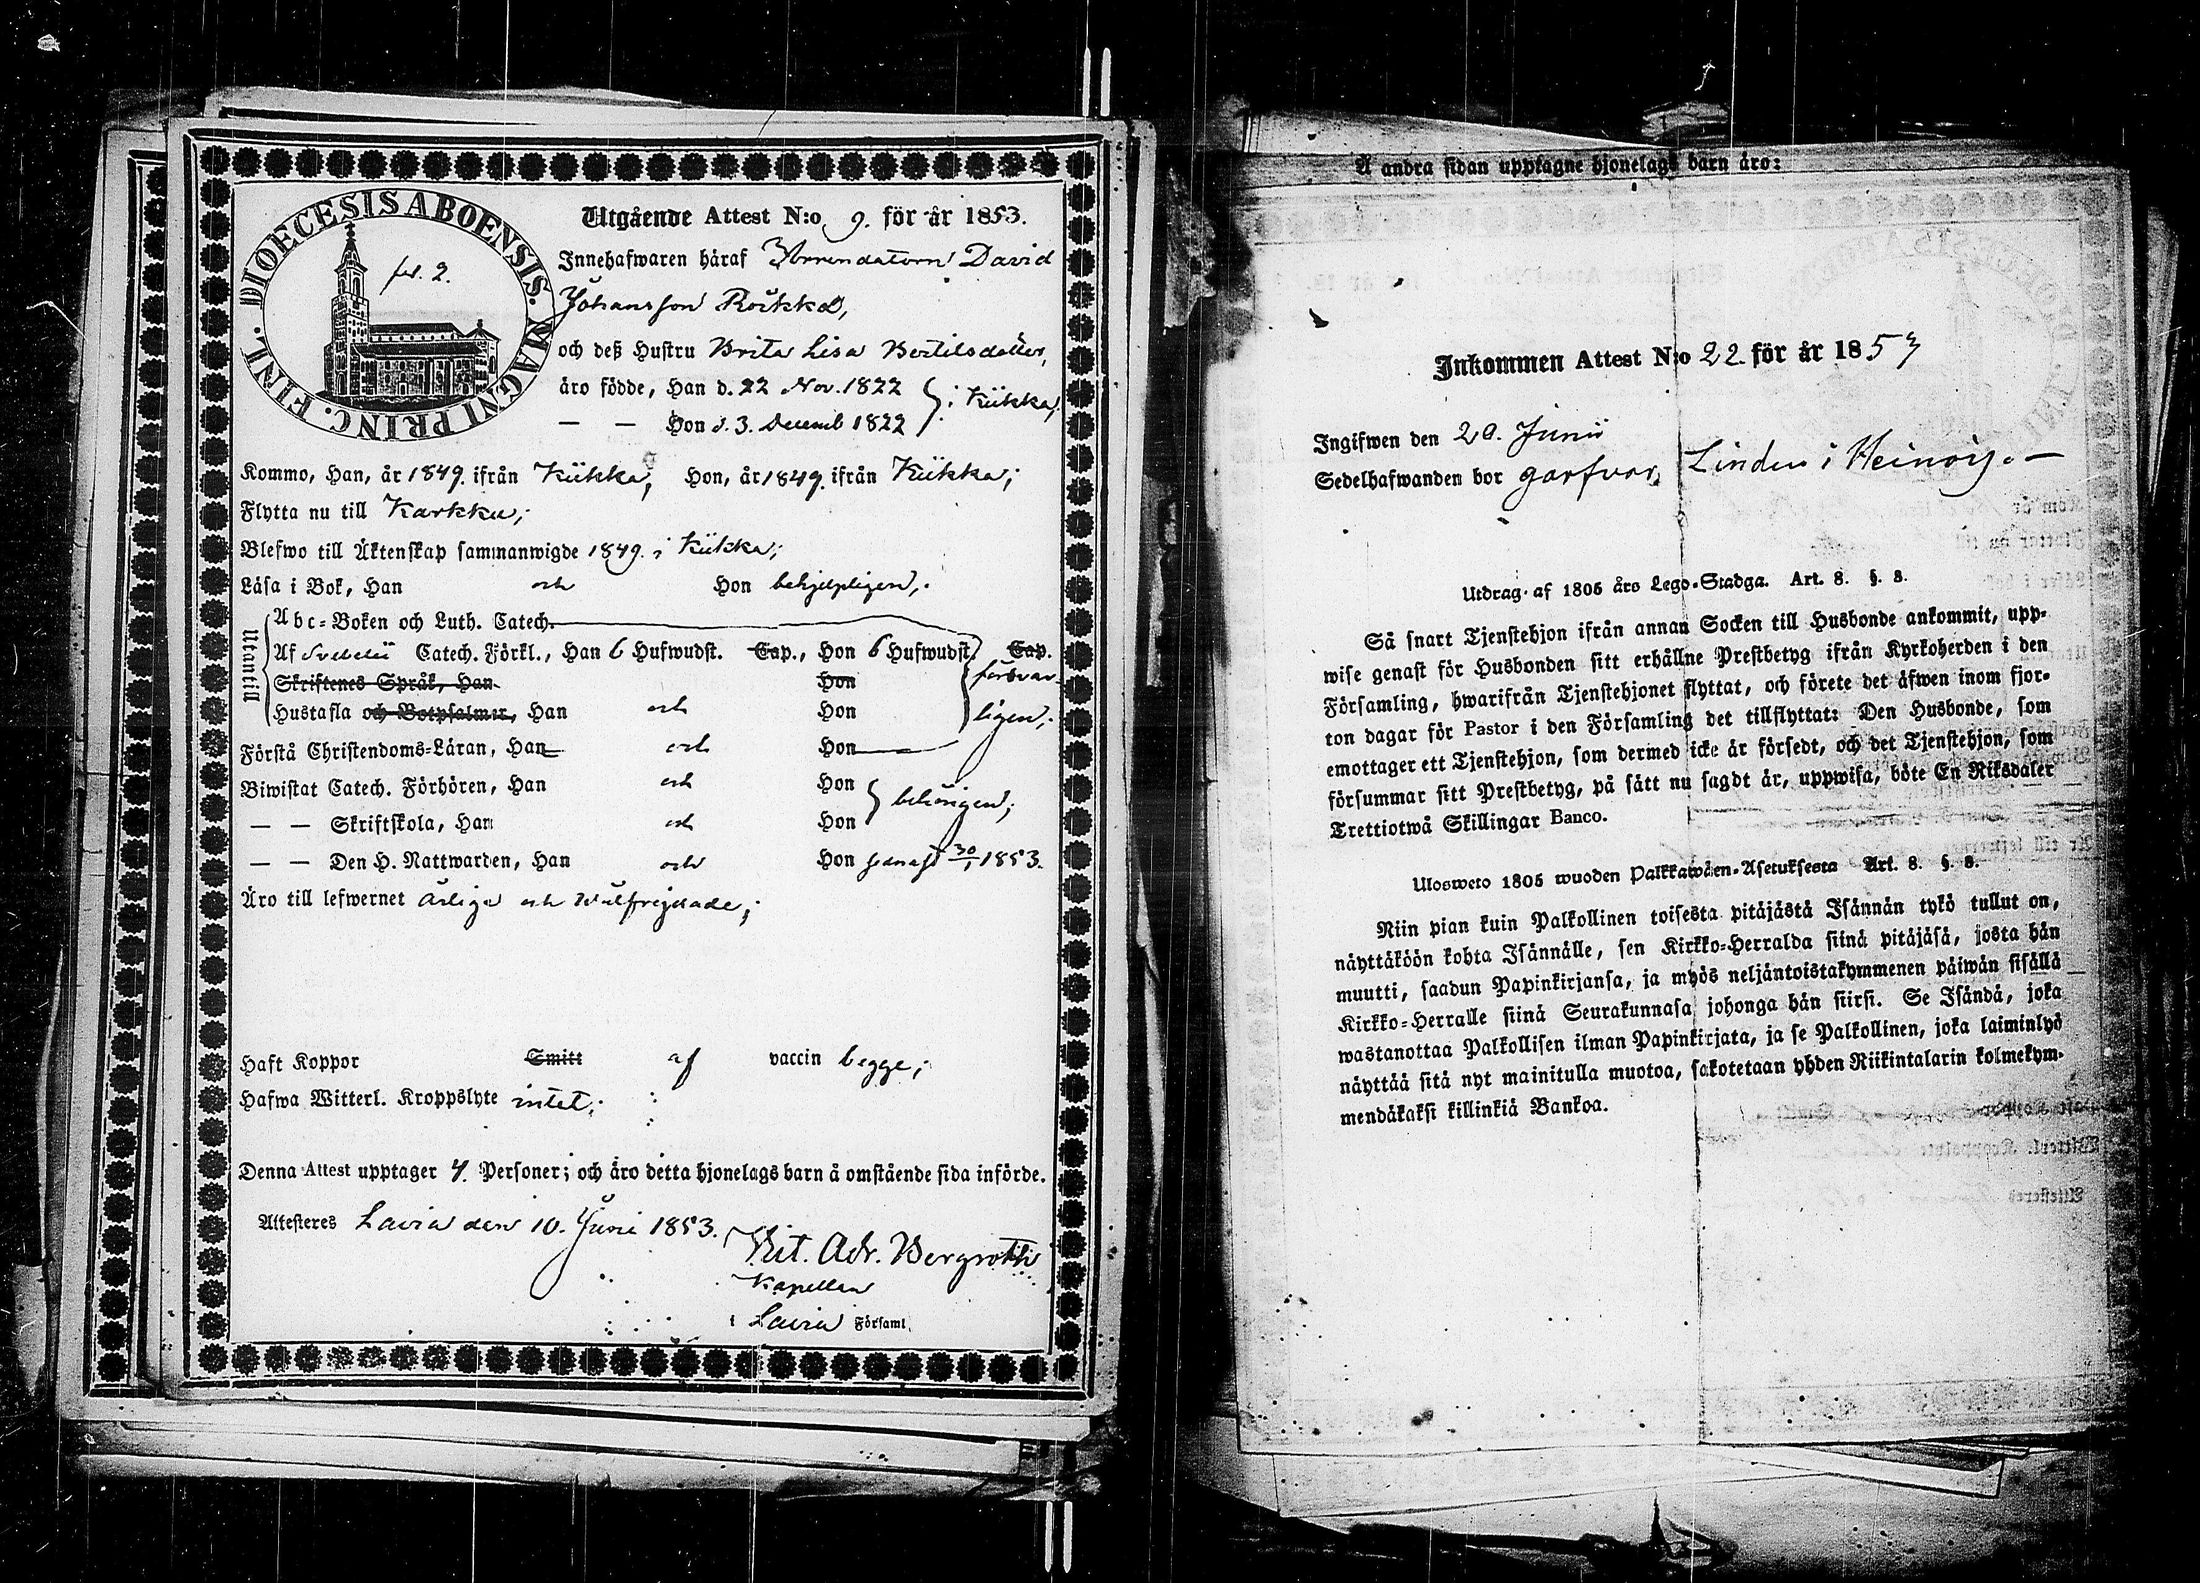 DIOECESIS ABOENSIS. MAGNI PRINC. FINL.
fol. 2.
Utgående Attest N:o 9. för år 1853.
Innehafwaren häraf Arrendatorn David
Johansson
och deß Hustru Brita Lisa Bertilsdotter,
äro födde, Han d. 22 Nov. 1822 } i Kiikka,
— — Hon d. 3. Decemb 1822
Kommo, Han, år 1849. ifrån Kiikka, Hon, år 1849. ifrån Kiikka;
Flytta nu till Karkku;
Blefwo till Äktenskap sammanwigde 1849. i Kiikka;
Läsa i Bok, Han och Hon behjelpligen;
Utantill
Abc-Boken och Luth. Catech.
Af Svebelii Catech. Förkl., Han 6 Hufwudst. Cap., Hon 6 Hufwudst. Cap.
Skriftenes Språk, Han Hon försvar-
Hustafla och Botpsalmer, Han och Hon ligen;
Förstå Christendoms-Läran, Han och Hon
Biwistat Catech. Förhören, Han och Hon } behörigen;
— — Skriftskola, Han och Hon
— — Den H. Nattwarden, Han och Hon sednast 30/1 1853.
Äro till lefwernet ärliga och wälfrejdade;
Haft Koppor Smitt af vaccin begge;
Hafwa Witterl. Kroppslyte intet;
Denna Attest upptager 4. Personer; och äro detta hjonelags barn å omstående sida införde.
Attesteres Lavia den 10. Juni 1853.
Vit. Adr. Bergroth
Kapellan
i Lavia Församl.
Å andra sidan upptagne hjonelags barn äro:
Inkommen Attest N:o 22 för år 1857
Ingifwen den 20. Junii
Sedelhafwanden bor garfvar Linden i Heinoij. —
Utdrag af 1805 års Lego-Stadga. Art. 8. §. 8.
Så snart Tjenstehjon ifrån annan Socken till Husbonde ankommit, upp-
wise genast för Husbonden sitt erhållne Prestbetyg ifrån Kyrkoherden i den
Församling, hwarifrån Tjenstehjonet flyttat, och förete det äfwen inom fjor-
ton dagar för Pastor i den Församling det tillflyttat: Den Husbonde, som
emottager ett Tjenstehjon, som dermed icke är försedt, och det Tjenstehjon, som
försummar sitt Prestbetyg, på sätt nu sagdt är, uppwisa, böte En Riksdaler
Trettiotwå Skillingar Banco.
Ulosweto 1805 wuoden Palkkawäen-Asetuksesta Art. 8. §. 8.
Niin pian kuin Palkollinen toisesta pitäjästä Isännän tykö tullut on,
näyttäköön kohta Isännälle, sen Kirkko-Herralda siinä pitäjäsä, josta hän
muutti, saadun Papinkirjansa, ja myös neljäntoistakymmenen päiwän sisällä
Kirkko-Herralle siinä Seurakunnasa johonga hän siirsi. Se Isändä, joka
wastanottaa Palkollisen ilman Papinkirjata, ja se Palkollinen, joka laiminlyö
näyttää sitä nyt mainitulla muotoa, sakotetaan yhden Riikintalarin kolmekym-
mendäkaksi killinkiä Bankoa.